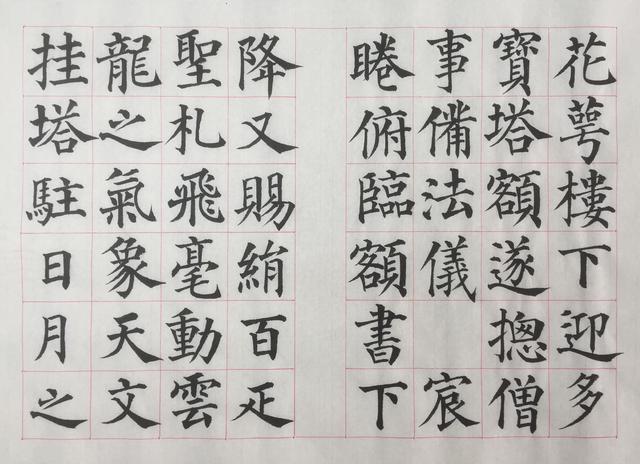 花萼樓下迎多
寶塔額遂摠僧
事備法儀宸
睠俯臨額書下
降又賜絹百疋
聖札飛毫動雲
龍之氣象天文
挂塔駐日月之